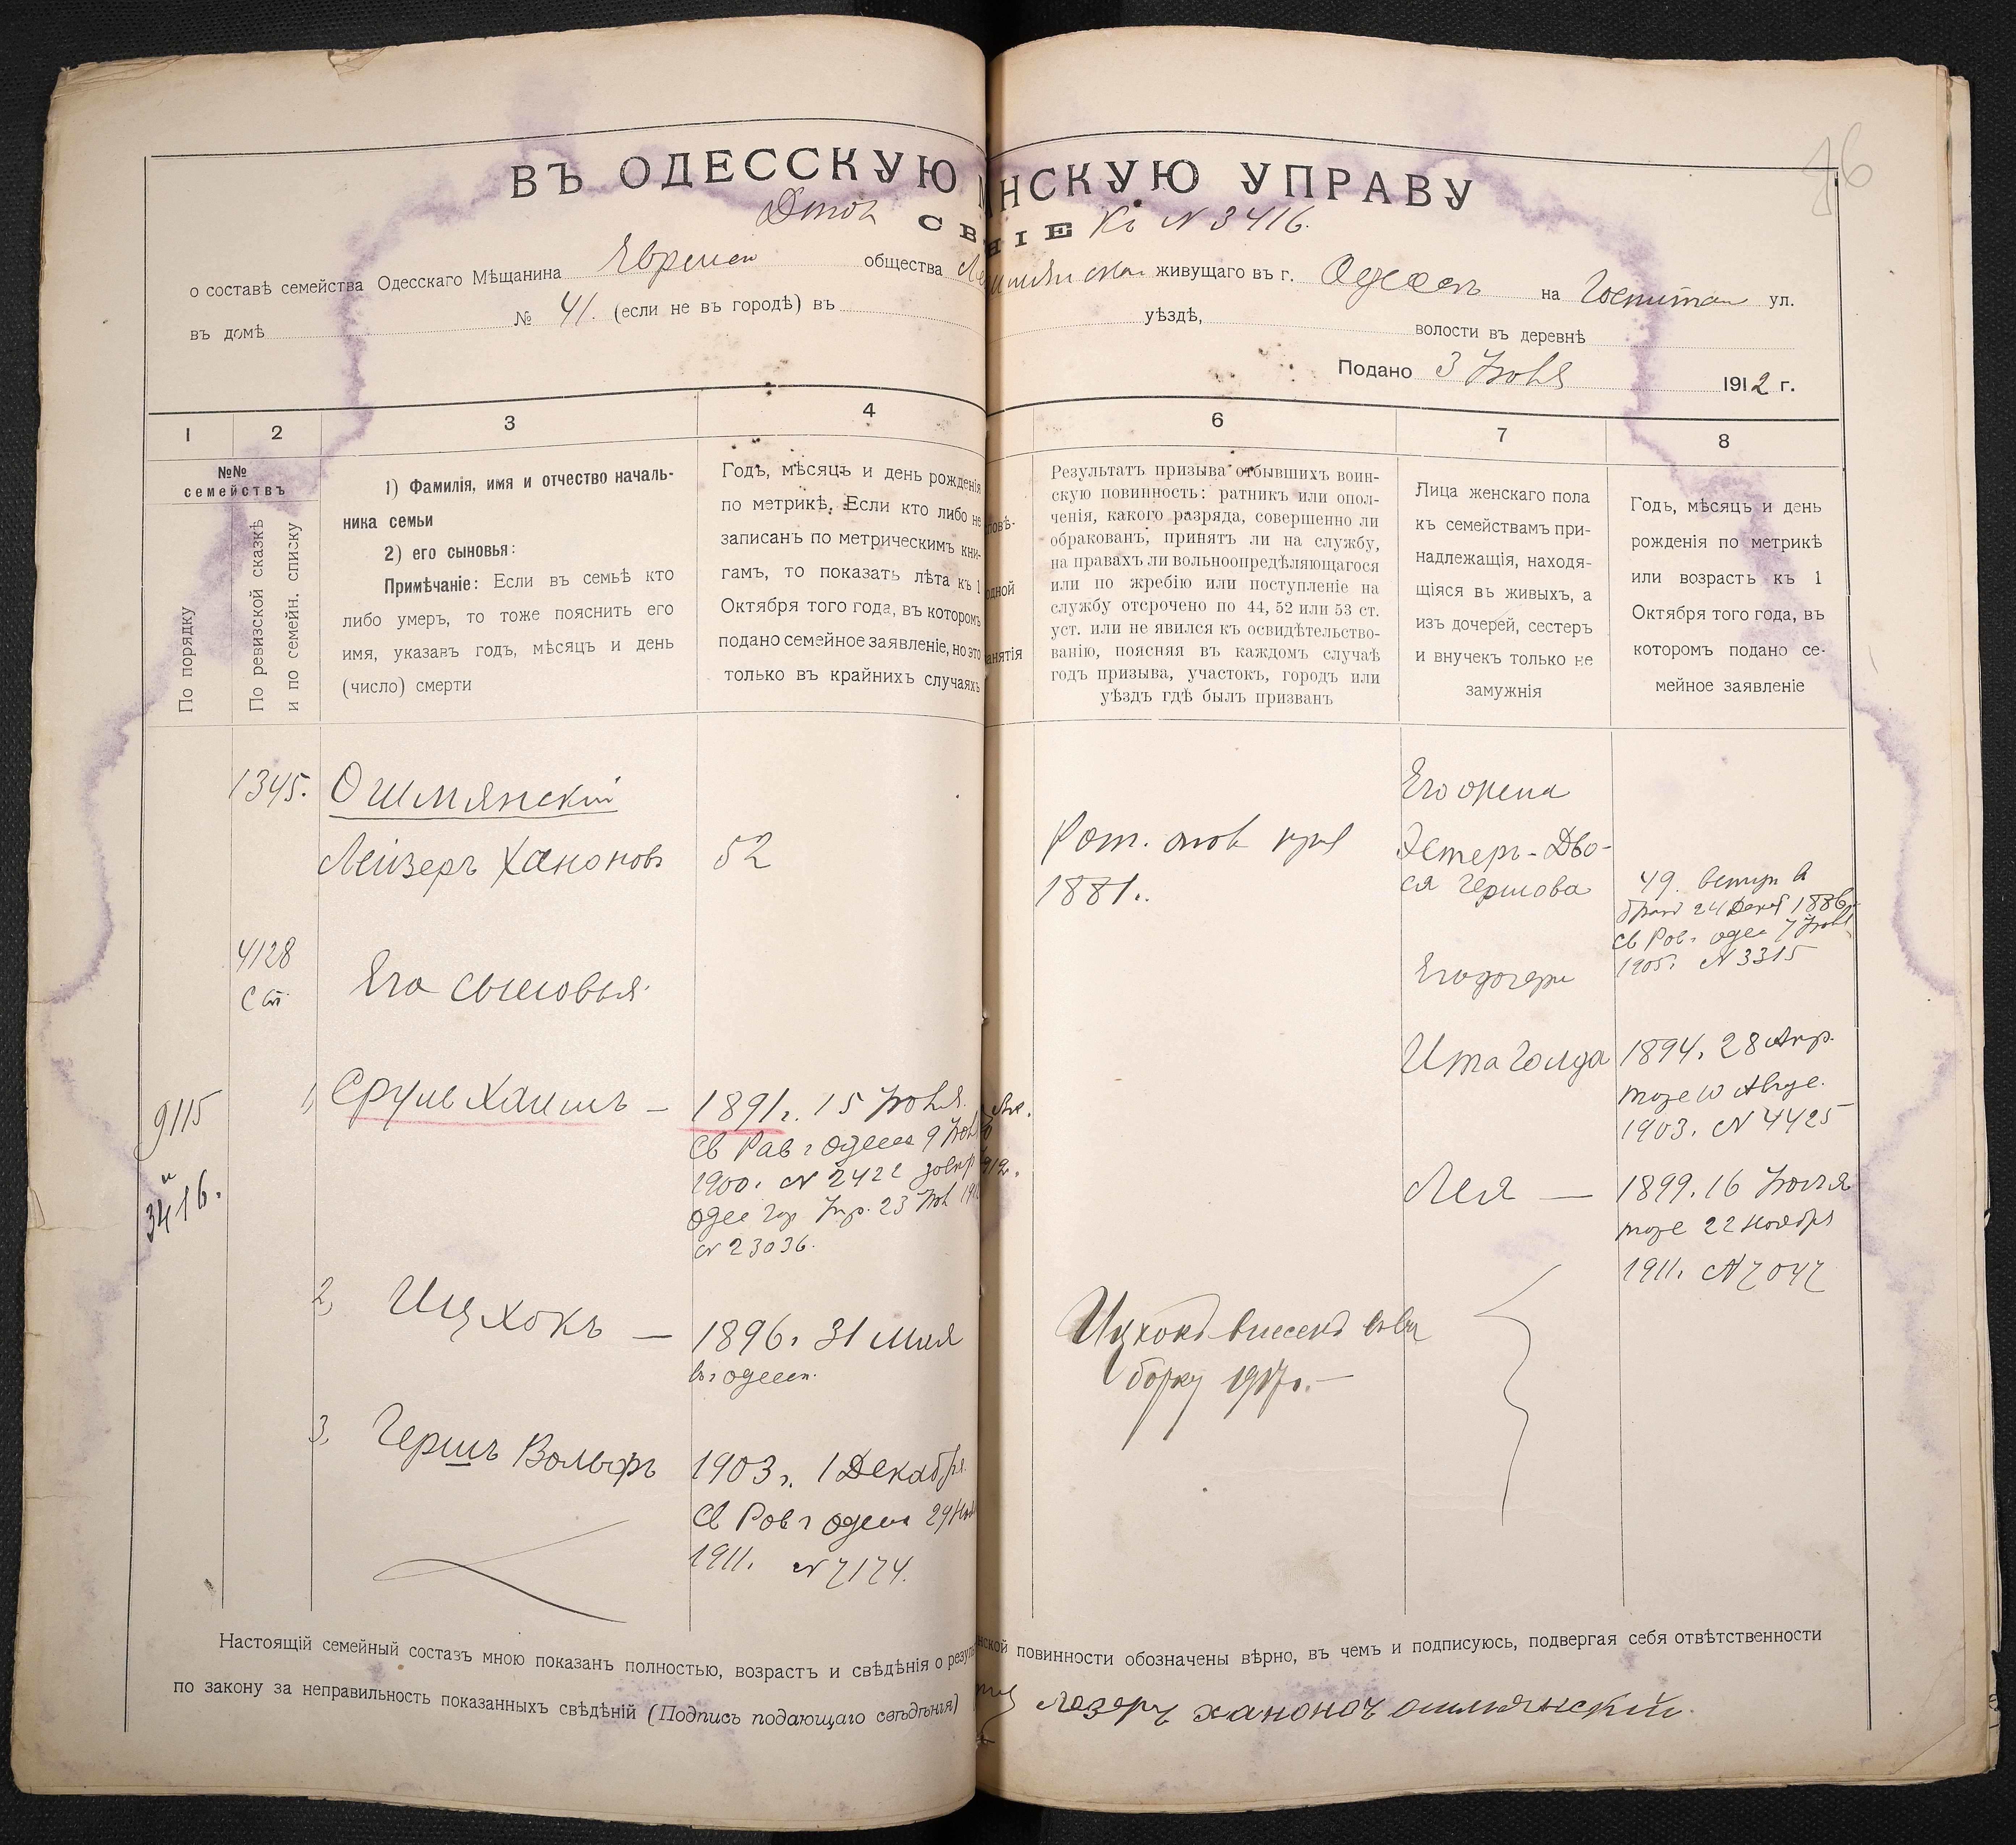 76
ВЪ ОДЕССКУЮ НСКУЮ УПРАВУ
СВ НІЕ Къ N 3416.
о составѣ семейства Одесскаго Мѣщанина Евреи общества живущаго въ г. Одессѣ на Госпитал ул.
въ домѣ № 41. (если не въ городѣ) въ уѣздѣ, волости въ деревнѣ
Подано 3 Іюня 1912 г.
1 2 3 4 6 7 8
№№
семействъ
По порядку
По ревизской сказкѣ
и по семейн. списку
1) Фамилія, имя и отчество началь-
ника семьи
2) его сыновья:
Примѣчаніе: Если въ семьѣ кто
либо умеръ, то тоже пояснить его
имя, указавъ годъ, мѣсяцъ и день
(число) смерти
Годъ, мѣсяцъ и день рожденія
по метрикѣ. Если кто либо не
записанъ по метрическимъ кни-
гамъ, то показать лѣта къ 1
Октября того года, въ которомъ
подано семейное заявленіе, но это
только въ крайнихъ случаяхъ
повѣ-
одной
анятія
Результатъ призыва отбывшихъ воин-
скую повинность: ратникъ или опол-
ченія, какого разряда, совершенно ли
обракованъ, принятъ ли на службу,
на правахъ ли вольноопредѣляющагося
или по жребію или поступленіе на
службу отсрочено по 44, 52 или 53 ст.
уст. или не явился къ освидѣтельство-
ванію, поясняя въ каждомъ случаѣ
годъ призыва, участокъ, городъ или
уѣздъ гдѣ былъ призванъ
Лица женскаго пола
къ семействамъ при-
надлежащія, находя-
щіяся въ живыхъ, а
изъ дочерей, сестеръ
и внучекъ только не
замужнія
Годъ, мѣсяцъ и день
рожденія по метрикѣ
или возрастъ къ 1
Октября того года, въ
которомъ подано се-
мейное заявленіе
1345. Ошмянскій
Лейзеръ Хононовъ 52
Рат. приз
1881.
Его жена
Эстеръ-Дво-
ся Гершова
49. вступ в
бракъ 24 Декаб 1886
Св Рав. одес 7 Іюня
1905. N 3315
4128
Его сыновья.
Его дочери
9115
и
3416.
1, Сруль Хаимъ — 1891 г. 15 Іюня.
Св Рав г одесс 9 Іюня
1900. N 2422
одес гор Упр. 23
N 23036.
Ита Голда 1894. 28 Апр.
тоже 10 Авгус.
1903. N 4425
Лея — 1899. 16 Іюля
тоже 22 ноября
1911. N 7047
2, Ицхокъ — 1896 г 31 Мая
въ г одессѣ.
Ицхокъ внесенъ въ вы
борку 1917 г. —
3, Гершъ Вольфъ 1903 г. 1 Декабря
Св Рав г одесс 29
1911. N 7174.
Настоящій семейный составъ мною показанъ полностью, возрастъ и свѣдѣнія о резуль нской повинности обозначены вѣрно, въ чемъ и подписуюсь, подвергая себя отвѣтственности
по закону за неправильность показанныхъ свѣдѣній (Подпись подающаго свѣдѣнія) Лезеръ Ханоновъ Ошмянскій